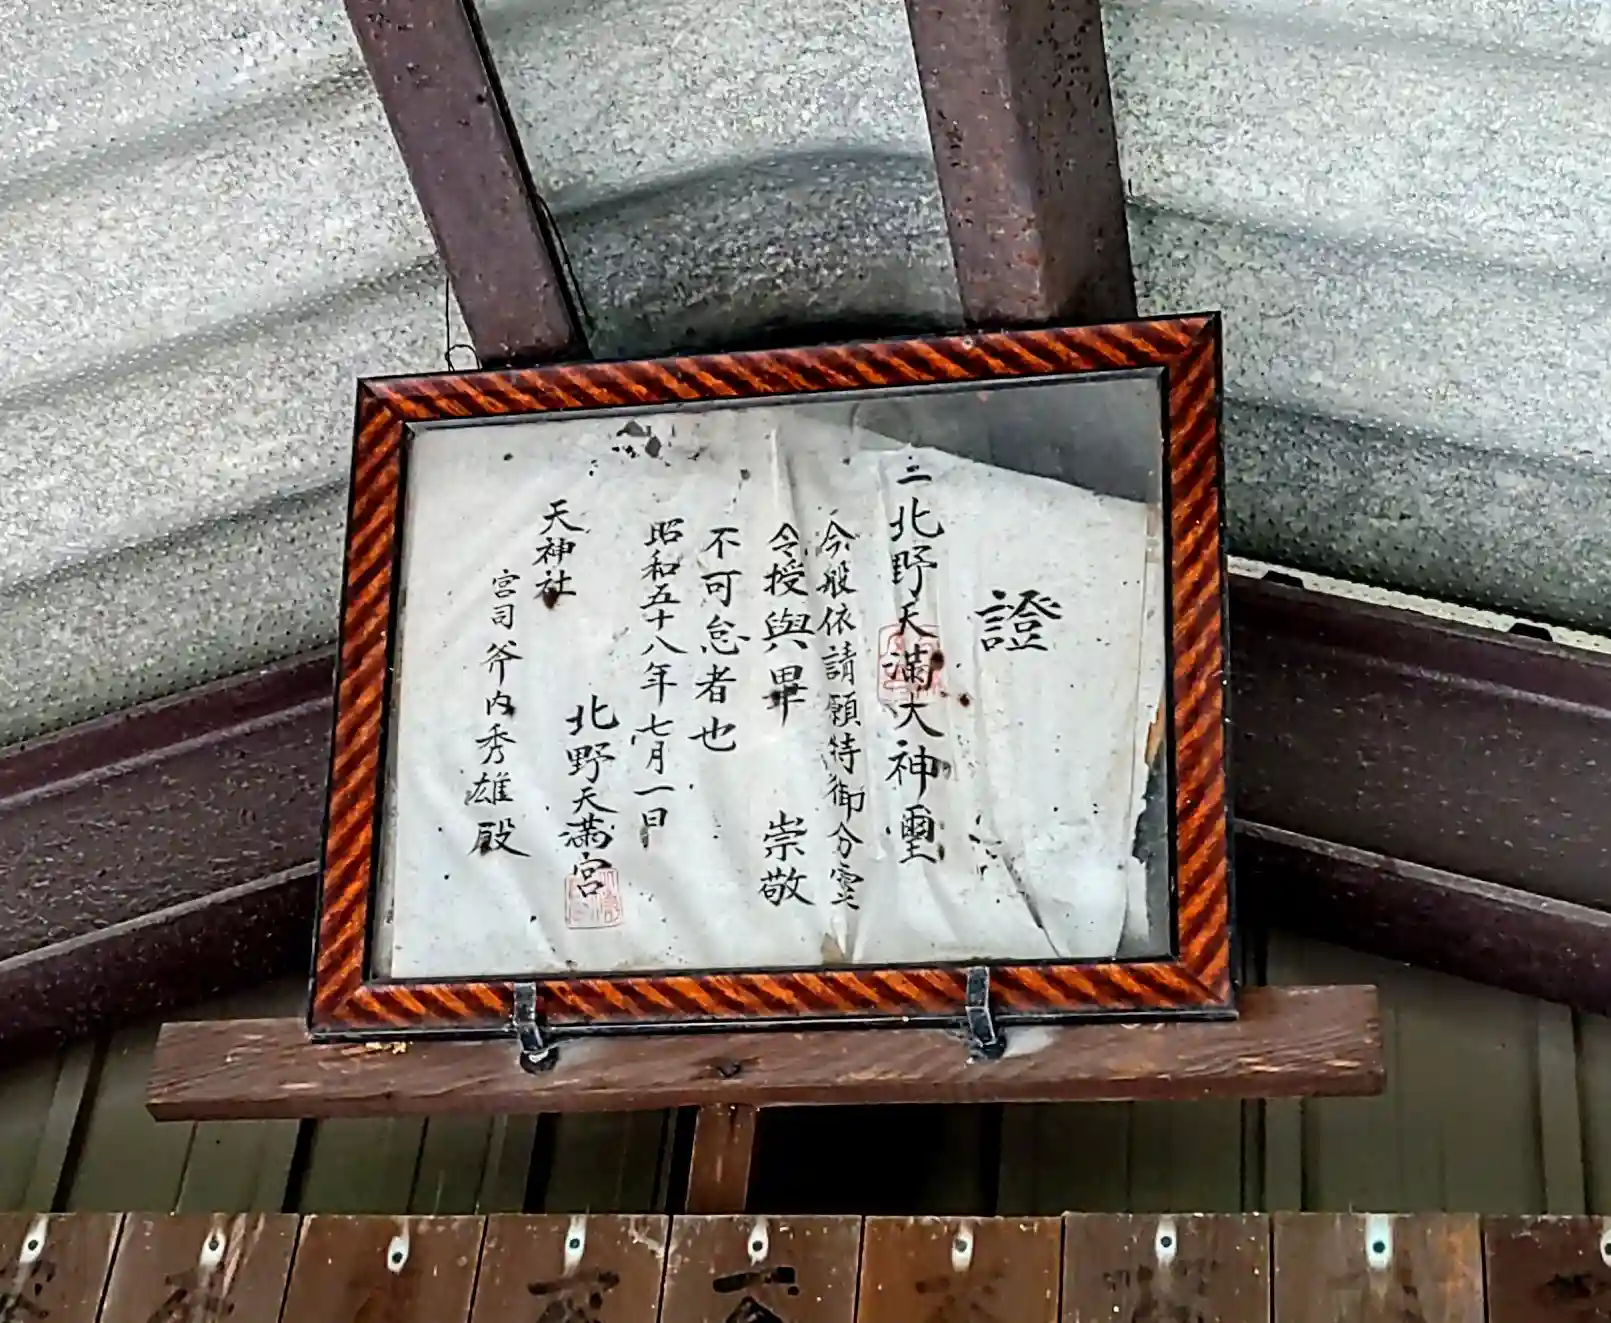 證
一北野天満大神璽
今般依請願特御分霊
令授與畢　崇敬
不可怠者也
昭和五十八年七月一日
北野天満宮
天神社
宮司 斧内秀雄殿